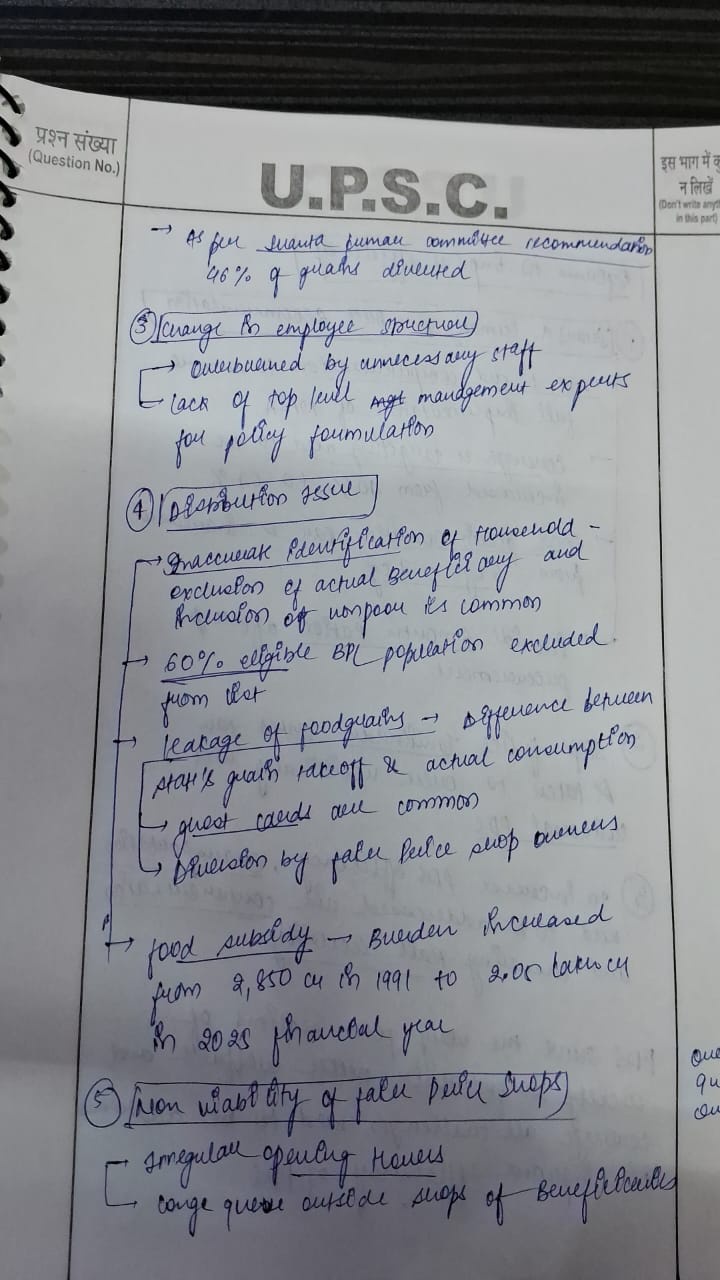 प्रश्न संख्या
(Question No.)
U.P.S.C.
इस भाग में कु
न लिखें
(Don't write anyt
in this part)
→ As per Shanta Kumar committee recommendation
46% of grains diverted
③ Change in employee structure
→ Overburdened by unnecessary staff
Lack of top level management experts
for policy formulation
④ Distribution issue
→ Inaccurate identification of Household -
exclusion of actual Beneficiary and
inclusion of nonpoor is common
→ 60% eligible BPL population excluded
from list
→ leakage of foodgrains → Difference between
state's grain takeoff & actual consumption
→ ghost cards are common
→ Diversion by fair price shop owners
→ food subsidy → Burden increased
from 2,850 cr in 1991 to 2.05 lakh cr
in 2025 financial year
⑤ Non viability of fair price shops
Irregular opening Hours
→ Longe queue outside shops of Beneficiaries
que
qu